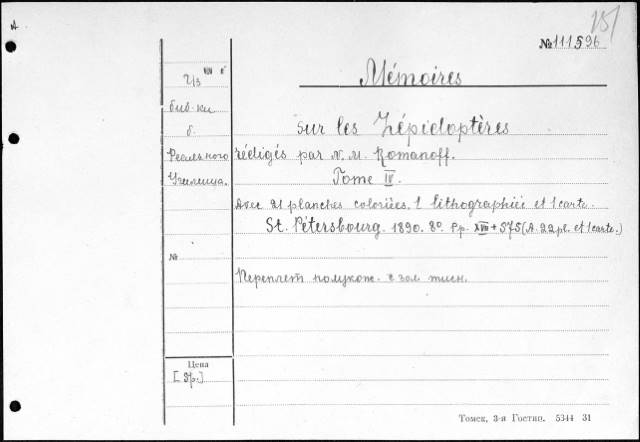 А
151
№ 111596
Mémoires
Из
биб-ки
б.
Реального
Училища.
sur les Lépidoptères
rédigés par N. M. Romanoff.
Tome IV.
Avec 21 planches coloriées, 1 lithographiée et 1 carte.
St. Pétersbourg. 1890. 8º. Pp. XVII + 575 (A. 22 pl. et 1 carte.)
№
Переплет полукож. с зол. тисн.
Цена
Томск, 3-я Гостип. 5344 31